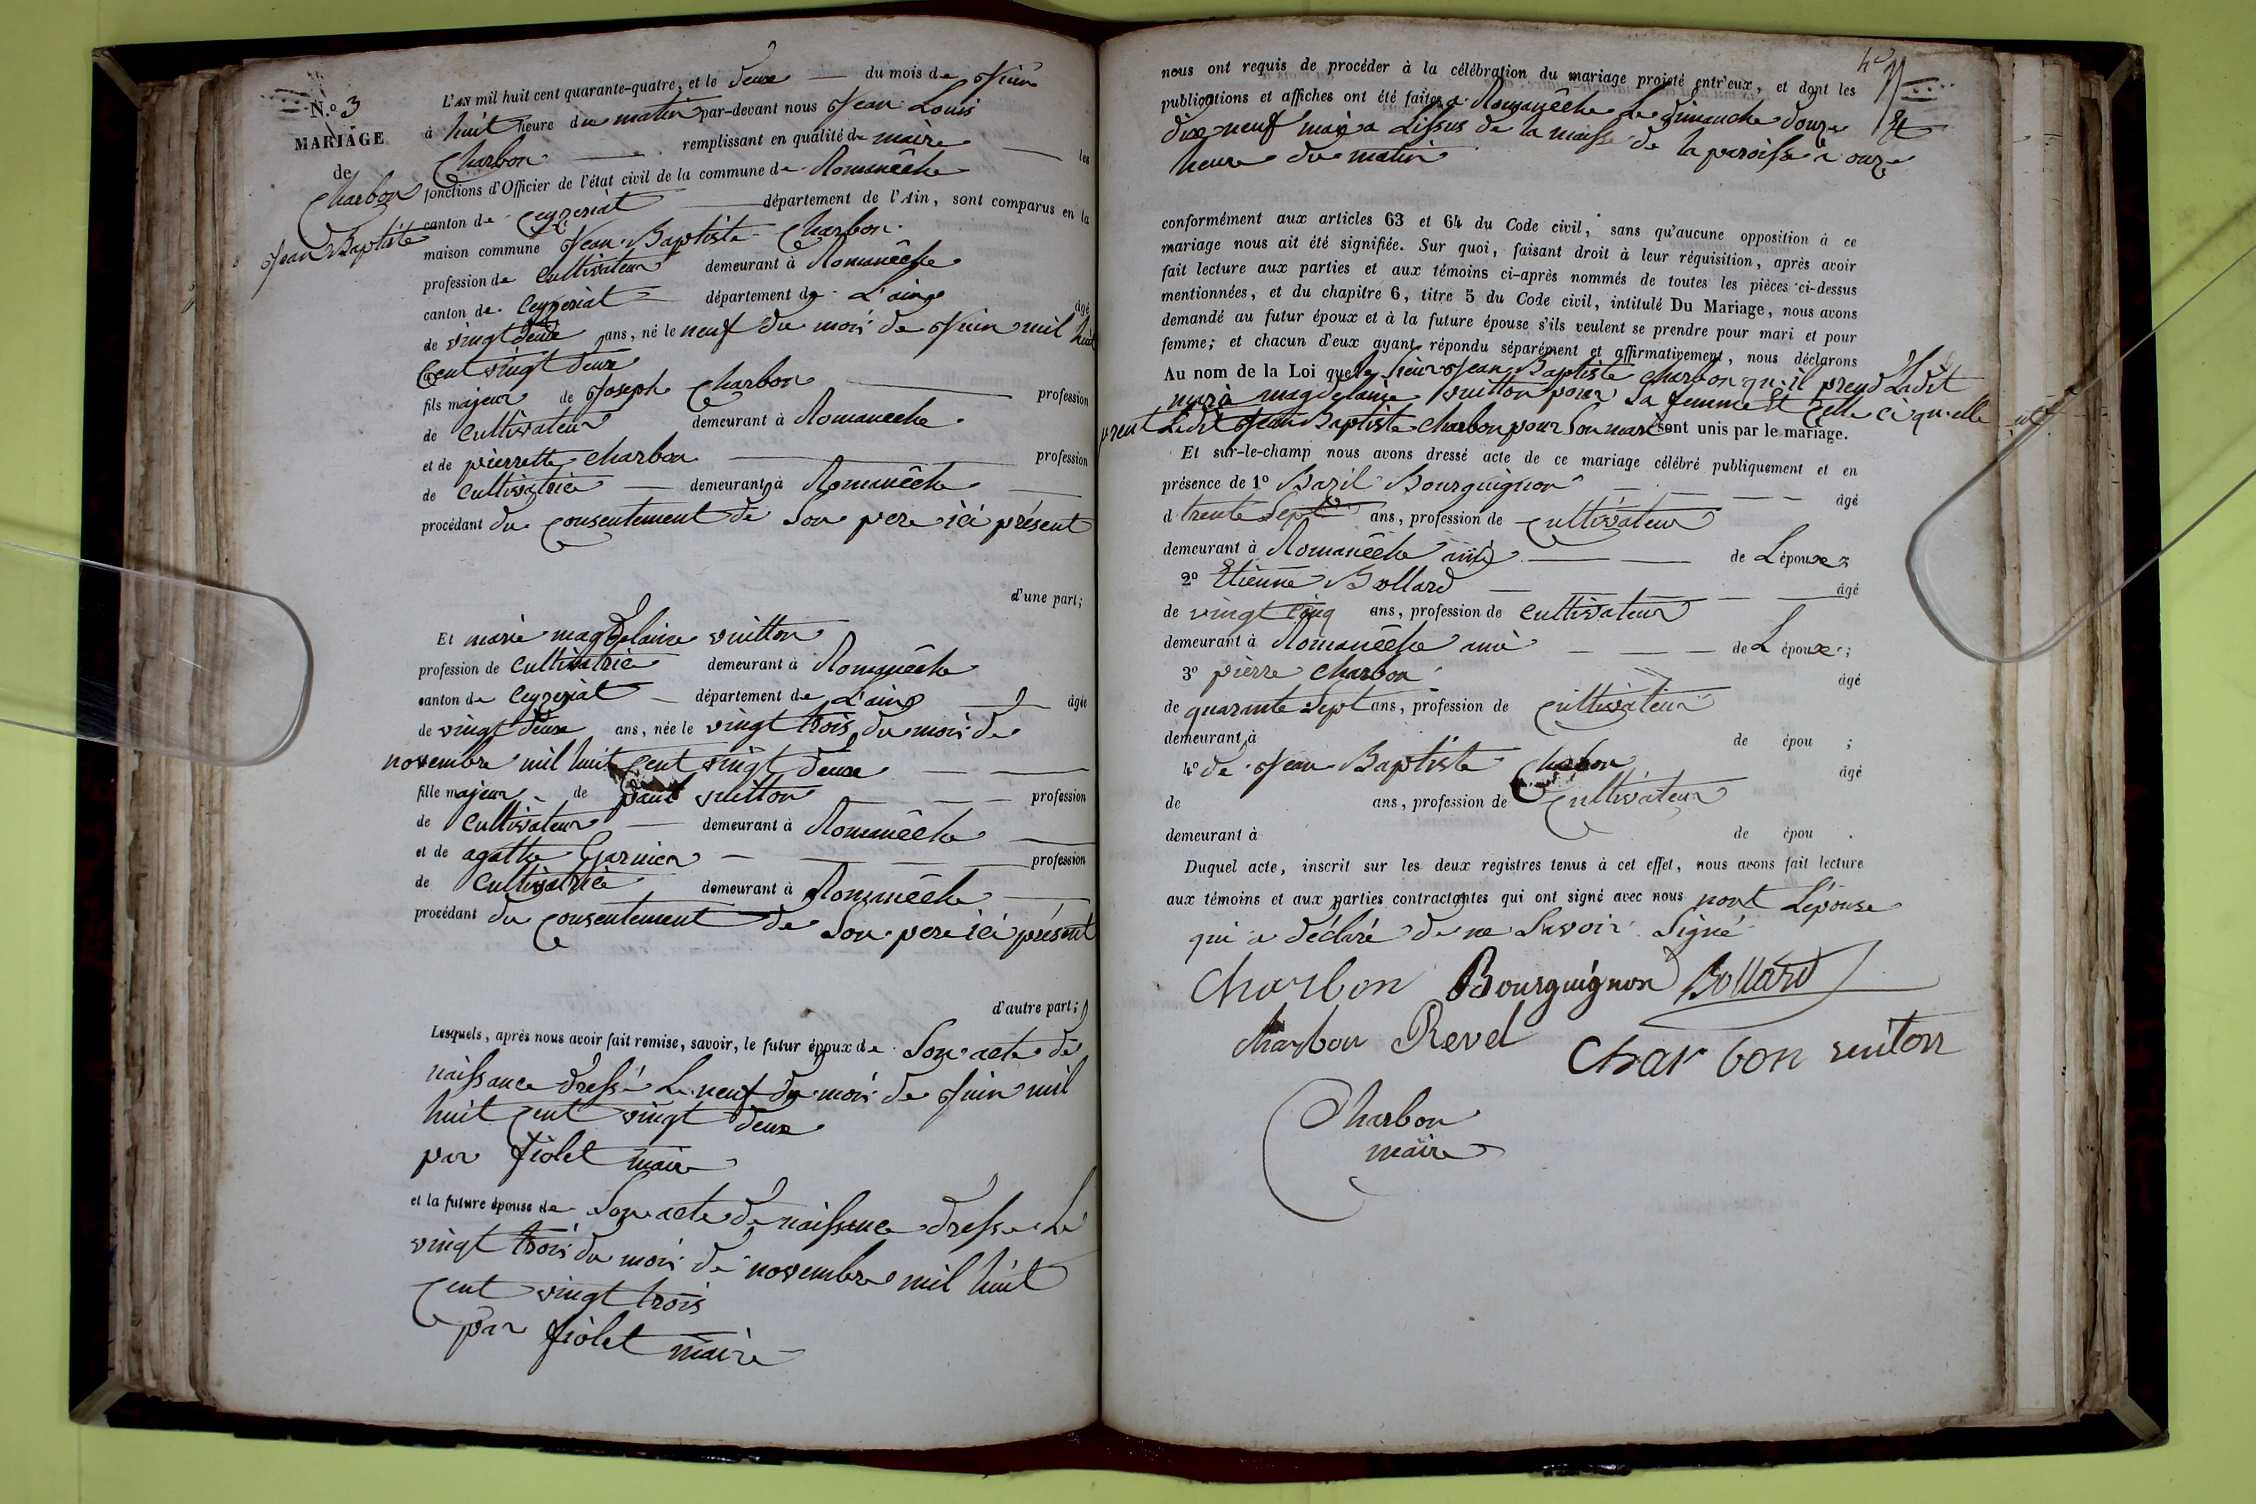 N.o 3
MARIAGE
de
Charbon
Jean Baptiste
L'AN mil huit cent quarante-quatre, et le deux du mois de Juin
à huit heure du matin par-devant nous Jean Louis
Charbon remplissant en qualité de maire les
fonctions d'Officier de l'état civil de la commune de Romanêche
canton de Ceyzeriat département de l'Ain, sont comparus en la
maison commune Jean Baptiste Charbon
profession de Cultivateur demeurant à Romanêche
canton de Ceyzeriat département de L'ain âgé
de vingt deux ans, né le neuf du mois de Juin mil huit
Cent vingt deux
fils majeur de Joseph Charbon profession
de Cultivateur demeurant à Romaneche
et de pierrette Charbon profession
de Cultivatrice demeurant à Romanêche
procédant du Consentement de Son pere ici présent
d'une part;
Et marie magdelaine vuitton
profession de Cultivatrice demeurant à Romanêche
canton de Ceyzeriat département de L'ain âgée
de vingt deux ans, née le vingt trois du mois de
novembre mil huit Cent vingt deux
fille majeur de paul vuitton profession
de Cultivateur demeurant à Romanêche
et de agathe Garnier profession
de Cultivatrice demeurant à Romanêche
procédant du Consentement de Son pere ici présent
d'autre part;
Lesquels, après nous avoir fait remise, savoir, le futur époux de Son acte de
naissance dressé Le neuf du mois de Juin mil
huit Cent vingt deux
par fiolet maire
et la future épouse de Son acte de naissance dresse Le
vingt trois du mois de novembre mil huit
Cent vingt trois
par fiolet maire
nous ont requis de procéder à la célébration du mariage projeté entr'eux, et dont les
publications et affiches ont été faites a Romanêche Le dimanche douze
dix neuf mai a Lissus de la messe de la paroisse a onze
heure du matin
conformément aux articles 63 et 64 du Code civil, sans qu'aucune opposition à ce
mariage nous ait été signifiée. Sur quoi, faisant droit à leur réquisition, après avoir
fait lecture aux parties et aux témoins ci-après nommés de toutes les pièces ci-dessus
mentionnées, et du chapitre 6, titre 5 du Code civil, intitulé Du Mariage, nous avons
demandé au futur époux et à la future épouse s'ils veulent se prendre pour mari et pour
femme; et chacun d'eux ayant répondu séparément et affirmativement, nous déclarons
Au nom de la Loi que le sieur Jean Baptiste Charbon qu'il prend Ladit
magdelaine vuitton pour Sa femme Et Celle ci qu'elle
prent Ledit Jean Baptiste Charbon pour Son mari sont unis par le mariage.
Et sur-le-champ nous avons dressé acte de ce mariage célébré publiquement et en
présence de 1o Bazil Bourguignon âgé
d trente Sept ans, profession de Cultivateur
demeurant à Romanêche ami de L époux
2o Etienne Bollard âgé
de vingt Cinq ans, profession de Cultivateur
demeurant à Romanêche ami de L époux;
3o pierre Charbon âgé
de quarante Sept ans, profession de Cultivateur
demeurant à de épou ;
4o de Jean Baptiste Charbon âgé
de ans, profession de Cultivateur
demeurant à de épou .
Duquel acte, inscrit sur les deux registres tenus à cet effet, nous avons fait lecture
aux témoins et aux parties contractantes qui ont signé avec nous nont L'épouse
qui a déclaré de ne Savoir Signé
Charbon Bourguignon Bollard
Charbon Revel Charbon vuiton
Charbon
maire